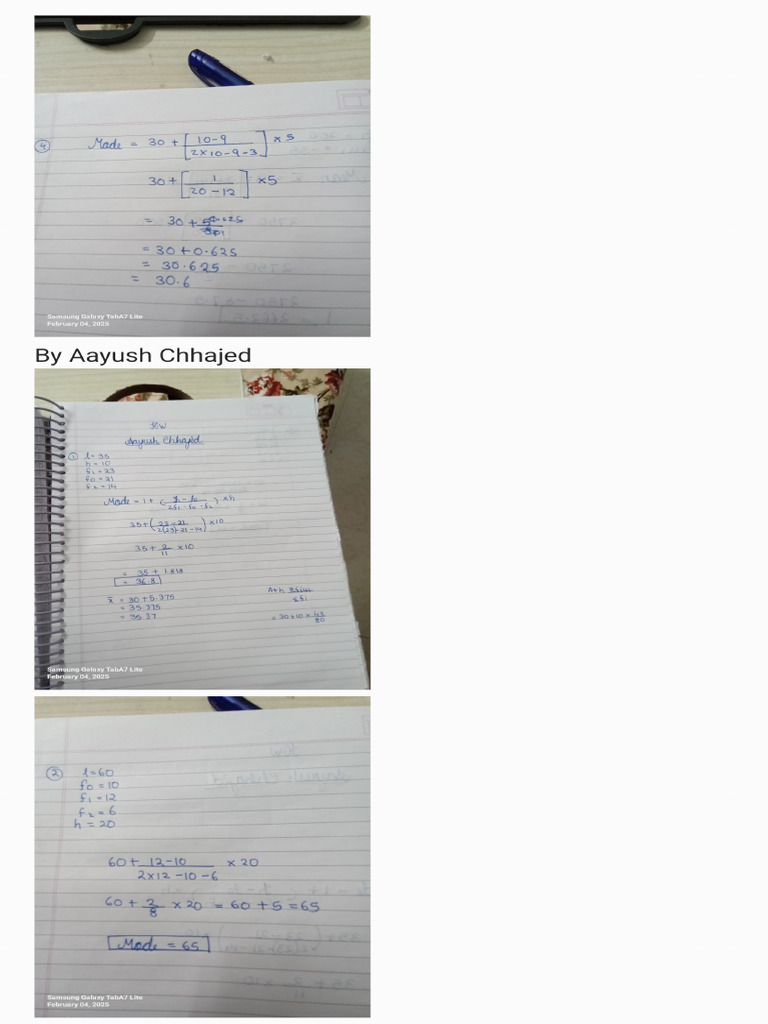 4 Mode = 30 + [ 10-9 / 2×10-9-3 ] × 5
30 + [ 1 / 20-12 ] × 5
= 30 + 0.625
= 30 + 0.625
= 30.625
= 30.6
Samsung Galaxy TabA7 Lite
February 04, 2025
By Aayush Chhajed
HW
Aayush Chhajed
1 l = 35
h = 10
f1 = 23
f0 = 21
f2 = 14
Mode = l + ( f1 - f0 / 2f1 - f0 - f2 ) × h
35 + ( 23-21 / 2(23)-21-14 ) × 10
35 + 2/11 × 10
= 35 + 1.818
= 36.8
x̄ = 30 + 5.375
= 35.375
= 35.37
A+h Σfiui / Σfi
= 30+10 × 43/80
Samsung Galaxy TabA7 Lite
February 04, 2025
2 l = 60
f0 = 10
f1 = 12
f2 = 6
h = 20
60 + 12-10 / 2×12-10-6 × 20
60 + 2/8 × 20 = 60 + 5 = 65
Mode = 65
Samsung Galaxy TabA7 Lite
February 04, 2025